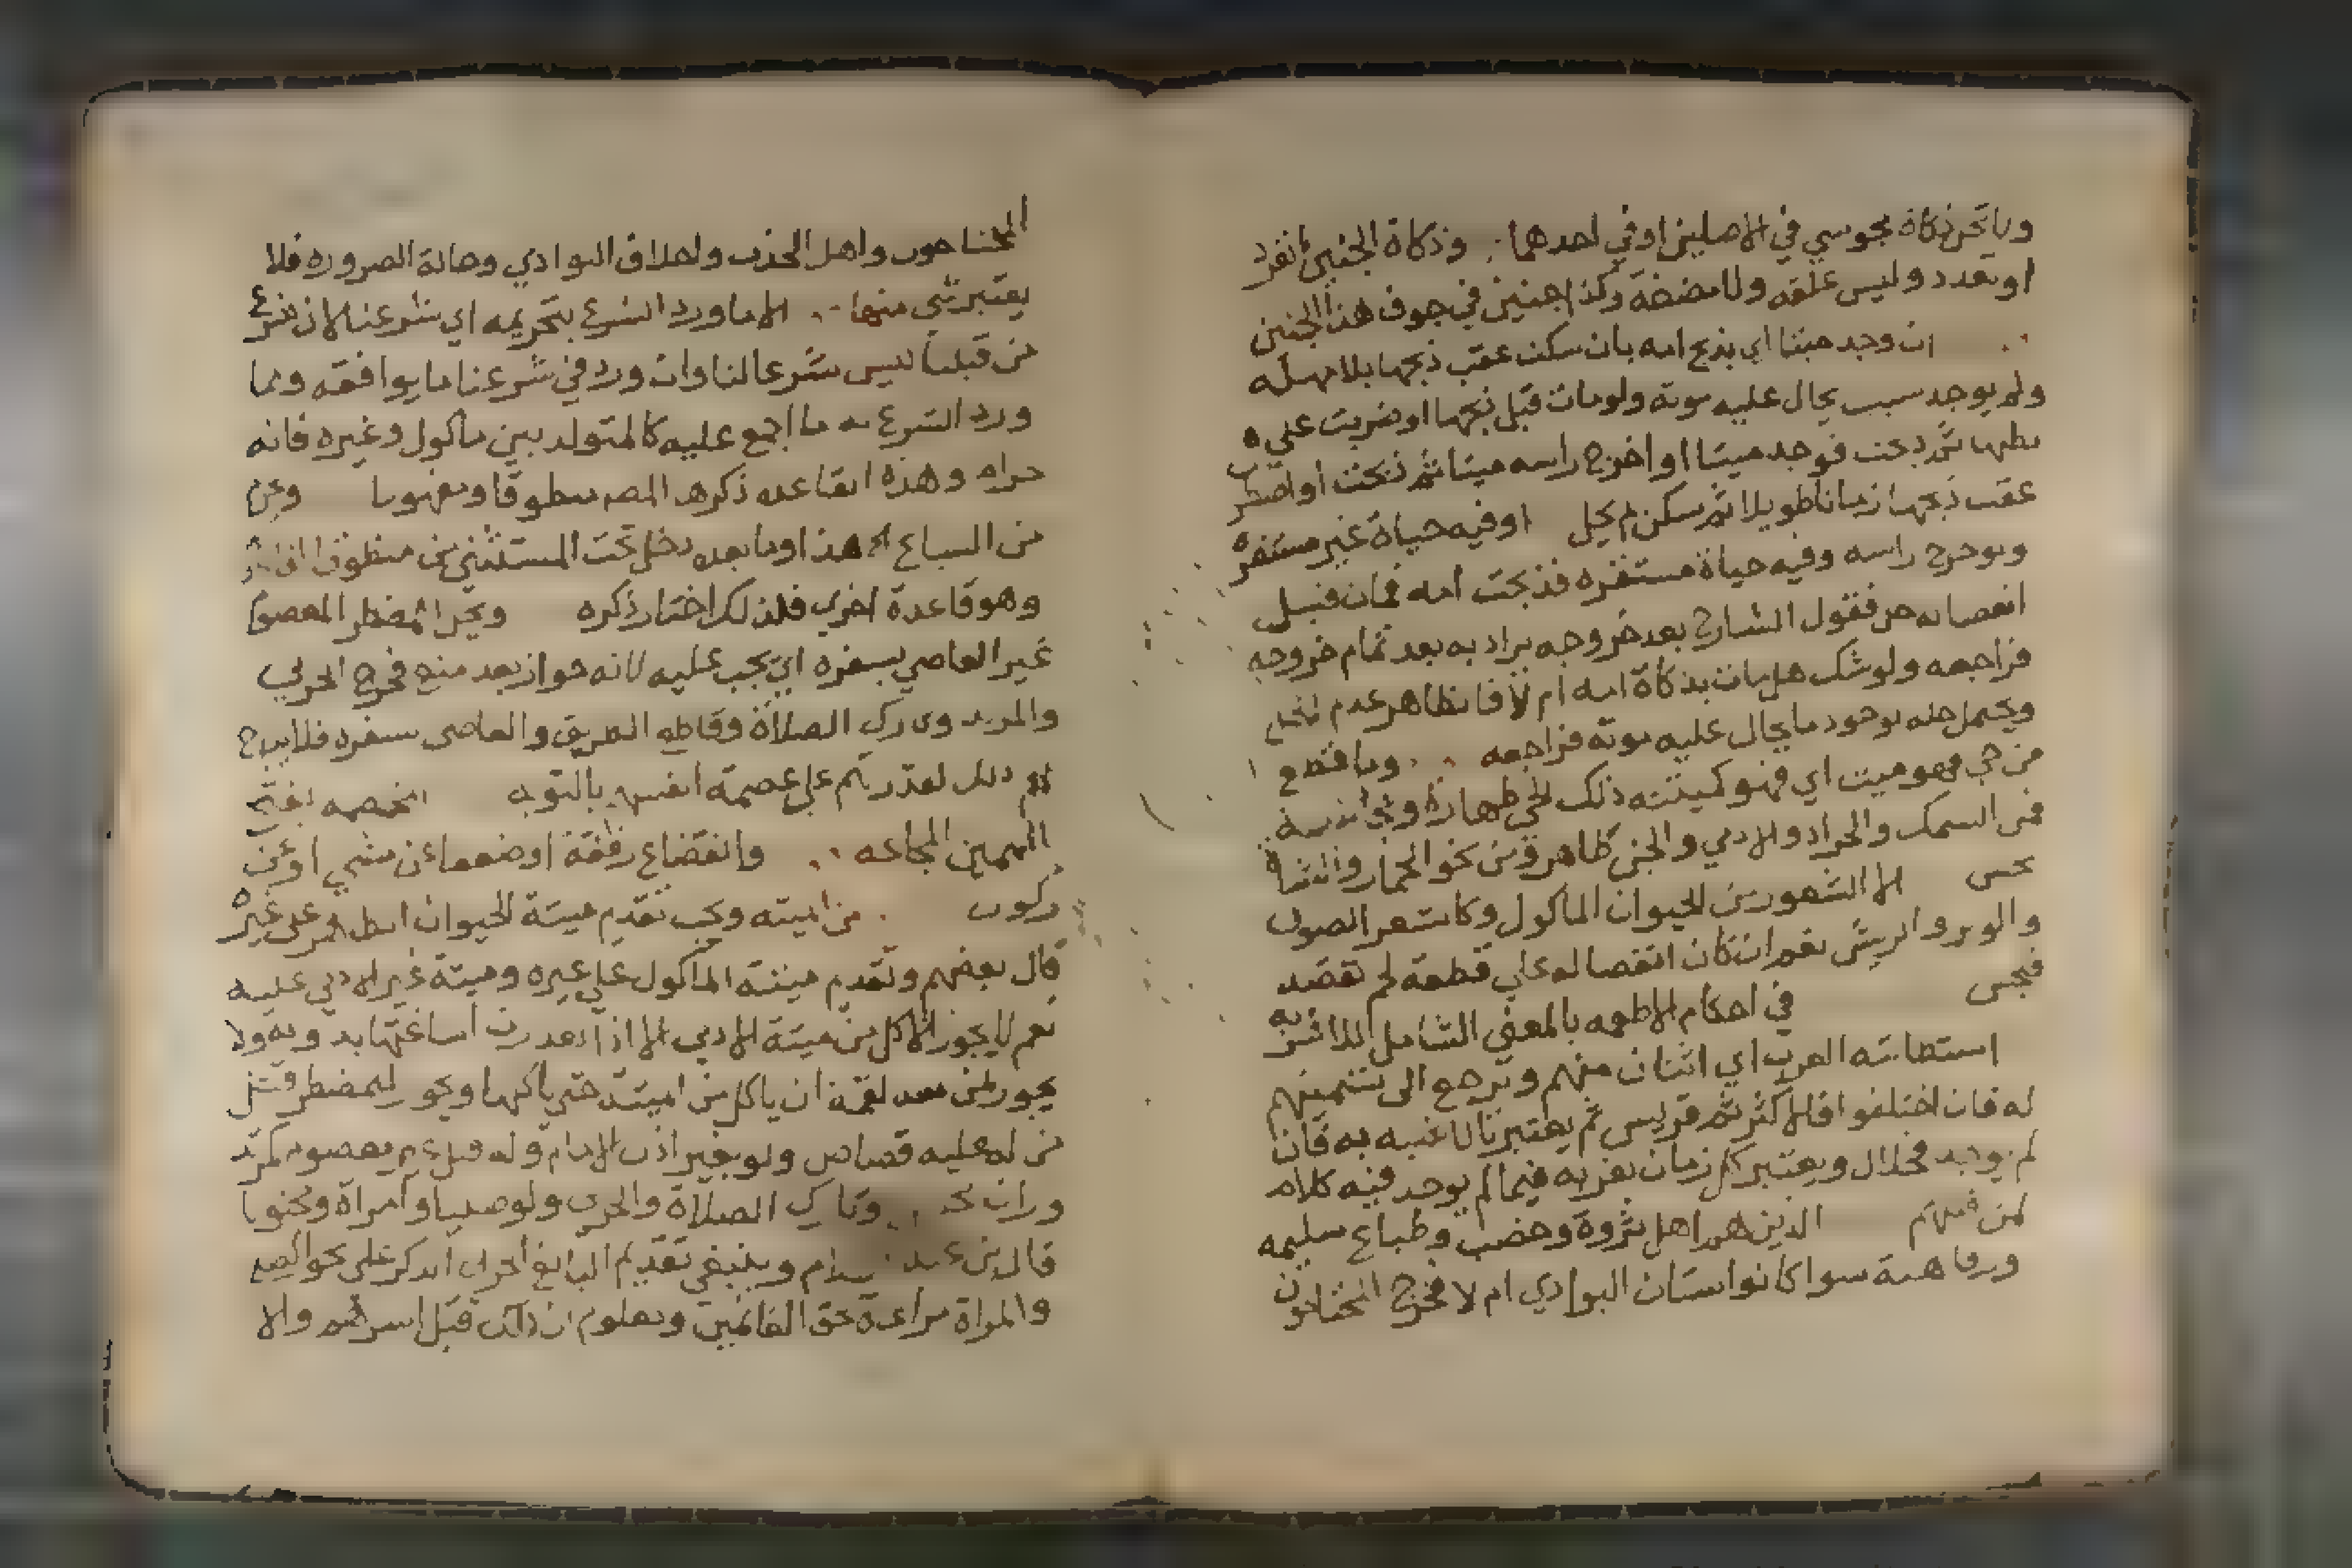 ولا تحل ذكاة مجوسي في الاصلين او في احدهما وذكاة الجنين انفرد
او تعدد وليس علقة ولا مضغة وكذا جنين في جوف هذا الجنين
ان وجد ميتا اي بذبح امه بان سكن عقب ذبحها بلا مهلة
ولم يوجد سبب يحال عليه موته ولو مات قبل ذبحها او ضربت على
بطنها ثم ذبحت فوجد ميتا او اخرج راسه ميتا ثم ذبحت او اضطرب
عقب ذبحها زمانا طويلا ثم سكن لم يحل او فيه حياة غير مستقرة
ولو خرج راسه وفيه حياة مستقره فذبحت امه فمات قبل
انفصاله حل فقول الشارح بعد خروجه يراد به بعد تمام خروجه
فراجعه ولو شك هل مات بذكاة امه ام لا فالظاهر عدم الحل
ويحتمل حله لوجود ما يحال عليه موته فراجعه وما قطع
من حي فهو ميت اي فهو كميتته ذلك الحي طهارة ونجاسة
فمن السمك والجراد والادمي والجن طاهر ومن نحو الحمار والشاة
نجس الا الشعور من الحيوان الماكول وكالشعر الصوف
والوبر والريش نعم ان كان انفصاله على قطعة لم تقصد
فنجس في احكام الاطعمه بالمعنى الشامل للاشربه
استطابته العرب اي اثنان منهم ويرجع الى تسميتهم
له فان اختلفوا فالاكثر ثم قريش ثم يعتبر بالاشبه به فان
لم يوجد فحلال ويعتبر كل زمان بعربه فيما لم يوجد فيه كلام
لمن قبلهم الذين هم اهل ثروة وخصب وطباع سليمه
ورفاهية سوا كانوا سكان البوادي ام لا فخرج المحتاجون
المحتاجون واهل الجدب واجلاف البوادي وحالة الضروره فلا
يعتبر شي منها الا ما ورد الشرع بتحريمه اي شرعنا لان شرع
من قبلنا ليس شرعا لنا وان ورد في شرعنا ما يوافقه ومما
ورد الشرع به ما اجمع عليه كالمتولد بين ماكول وغيره فانه
حرام وهذه القاعده ذكرها المصـ منطوقا ومفهوما
من السباع هذا وما بعده دخل تحت المستثنى من منطوق
وهو قاعدة اخرى فلذلك اختار ذكره ويحل للمضطر المعصوم
غير العاصي بسفره اي يجب عليه لانه جواز بعد منع فخرج الحربي
والمرتد وتارك الصلاة وقاطع الطريق والعاصي بسفره فلا يباح
لهم ذلك لقدرتهم على عصمة انفسهم بالتوبه المخمصه بفتح
الميمين المجاعه وانقطاع رفقة او ضعفا عن مشي او عن
ركوب من الميته ويجب تقديم ميتة الحيوان الطاهر على غيره
قال بعضهم وتقديم ميتة الماكول على غيره وميتة غير الادمي عليه
نعم لا يجوز الاكل من ميتة الادمي الا اذا
يجوز لمن معه لقمة ان ياكل من الميتة حتى ياكلها ويجوز للمضطر قتل
من له عليه قصاص ولو بغير اذن الامام وله قتل غير معصوم كمرتد
وزان محصن وتارك الصلاة والحربي ولو صبيا وامراة ومجنونا
قال ابن عبد السلام وينبغي تقديم البالغ الحربي الذكر على نحو الصبي
والمراة مراعاة لحق الغانمين ومعلوم ان ذلك قبل اسرهم والا